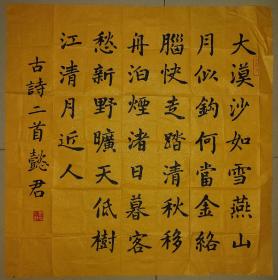 大漠沙如雪燕山
月似鈎何當金絡
腦快走踏清秋移
舟泊煙渚日暮客
愁新野曠天低樹
江清月近人
古詩二首懿君